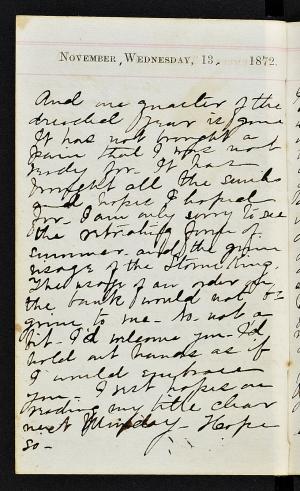 November, Wednesday, 13. 1872.
And one quarter of the
dreaded year is gone
It has not brought a
pain that I was not
ready for. It has
brought all the
and hopes I hoped
for. I am only sorry to see
the retreating form of
summer and the grim
visage of the Storm King.
The visage of an order on
the bank would not be
grim to me - to - not a
bit - I'd welcome you - I'd
hold out hands as if
I would embrace
you - I rest hopes on
reading my title clear
next Monday - Hope
so -